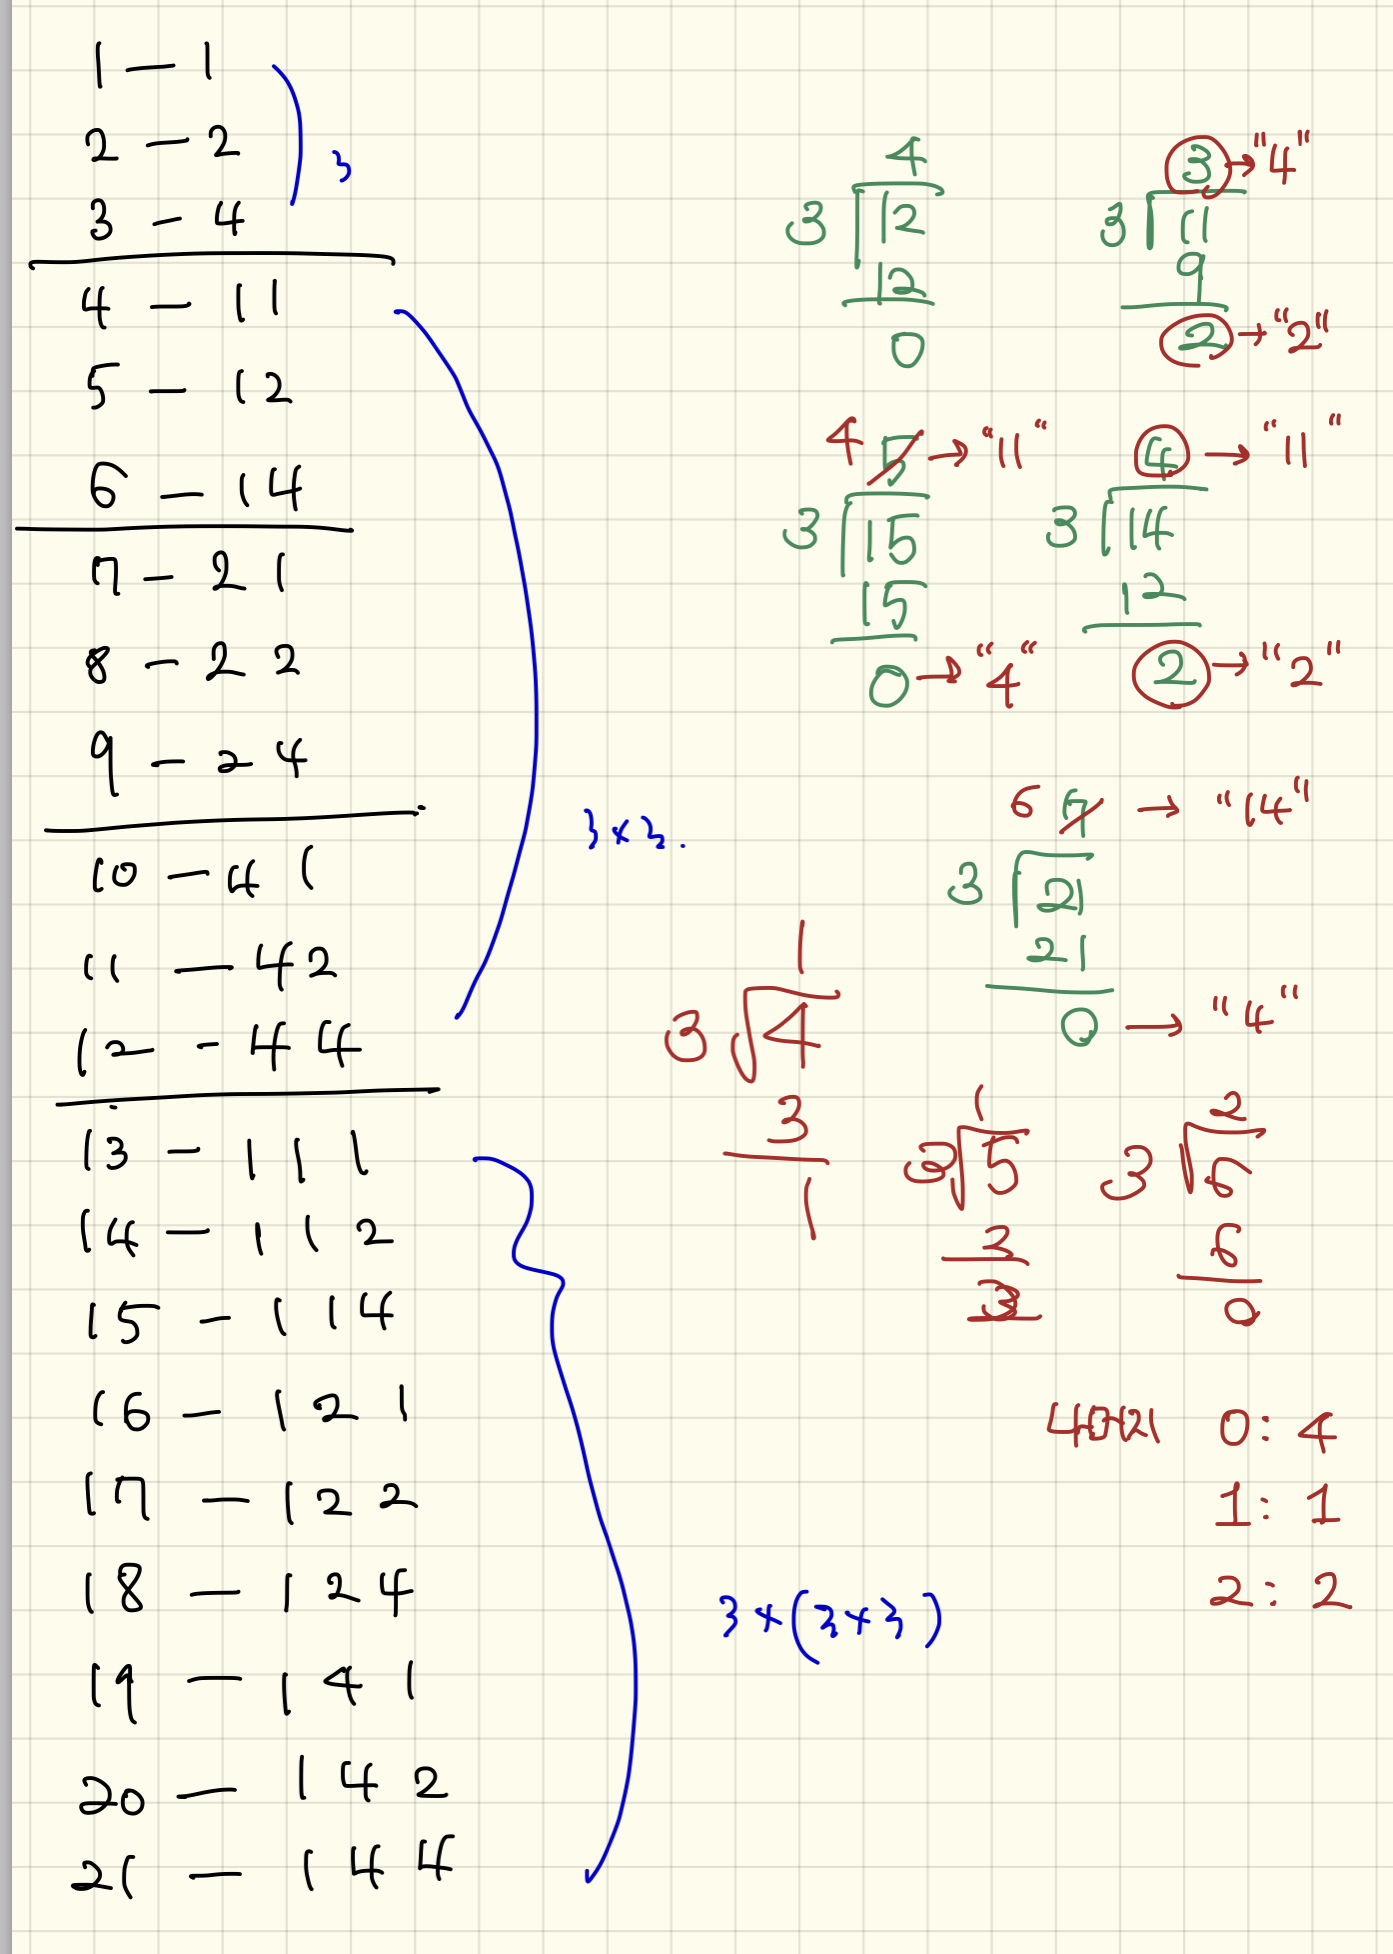 1 — 1
2 — 2
3 — 4
3
4 — 11
5 — 12
6 — 14
7 — 21
8 — 22
9 — 24
10 — 41
11 — 42
12 — 44
3 × 3.
13 — 111
14 — 112
15 — 114
16 — 121
17 — 122
18 — 124
19 — 141
20 — 142
21 — 144
3 × (3 × 3)
4
3 12
12
0
3 → "4"
3 11
9
2 → "2"
4 5 → "11"
3 15
15
0 → "4"
4 → "11"
3 14
12
2 → "2"
6 7 → "14"
3 21
21
0 → "4"
1
3 4
3
1
1
3 5
3
2
3 6
6
0
0: 4
1: 1
2: 2